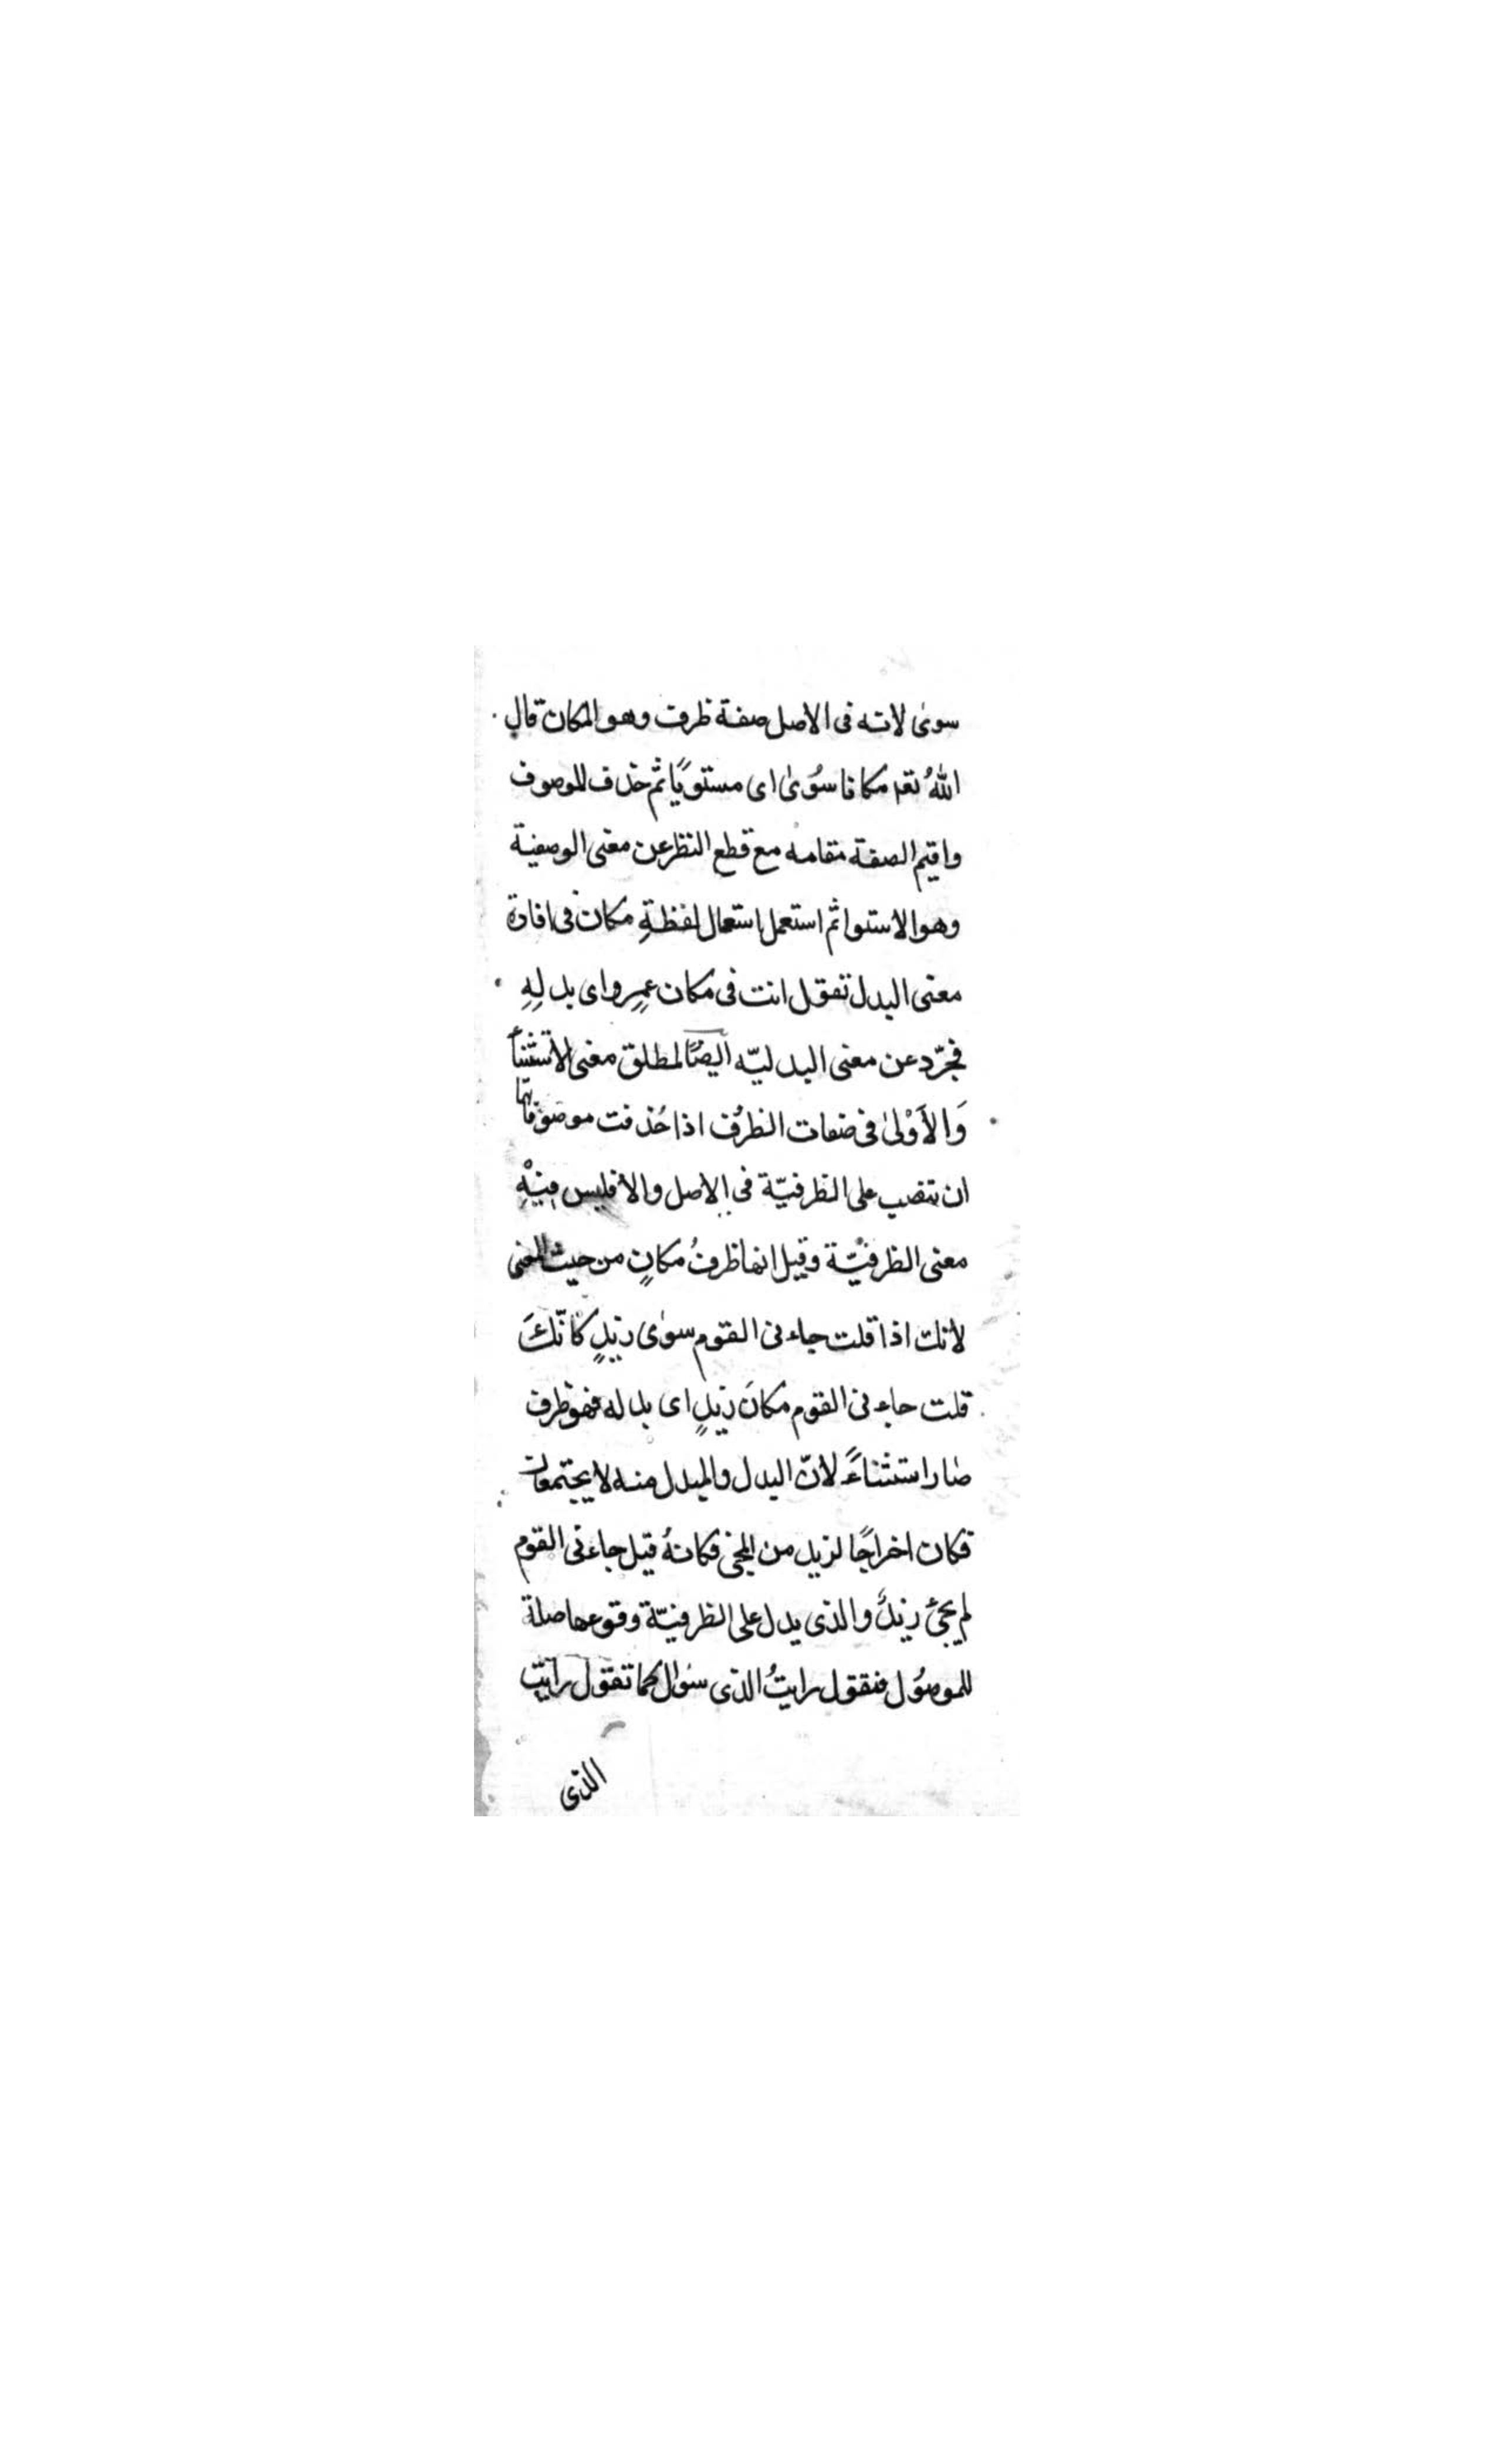 سوى لانه فى الاصل صفة ظرف وهو المكان قال
اللهُ تعه مكانا سُوىً اى مستويًا ثم حذف الموصوف
واقيم الصفة مقامه مع قطع النظر عن معنى الوصفية
وهو الاستوا ثم استعمل استعمال لفظةِ مكان فى افادة
معنى البدل تقول انت فى مكان عمرٍو اى بدلِهِ
فجرّد عن معنى البدليّه ايضًا لمطلق معنى الاستثنأ
وَالاَوْلىٰ فى صفات الظرُف اذا حُذفت موصوفاتها
ان تنصب على الظرفيّة فى الاصل والا فليس فِيْهِ
معنى الظرفيّة وقيل انها ظرفُ مكانٍ من حيث المعنى
لانك اذا قلت جاءنى القوم سوى زيدٍ كانّكَ
قلت جاءنى القوم مكانَ زيدٍ اى بدله فهو ظرف
صار استثناءً لانّ البدل والمبدل منه لا يجتمعان
فكان اخراجًا لزيد من المجئ فكانهُ قيل جاءنى القوم
لم يجئ زيدٌ والذى يدل على الظرفيّة وقوعها صلة
للموصُول فتقول رايتُ الذى سواك كما تقول رايت
الذى